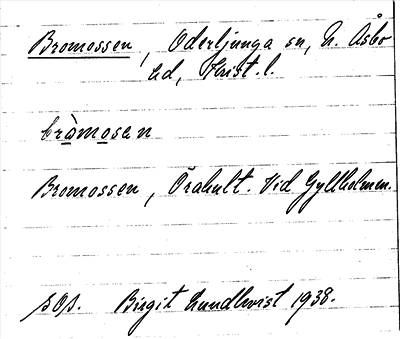 Bromossen, Oderljunga sn, N. Åsbo
hd, Krist. l.
bràmosen
Bromossen, Örahult. Vid Gyllholmen.
sOp. Birgit Lundkvist 1938.